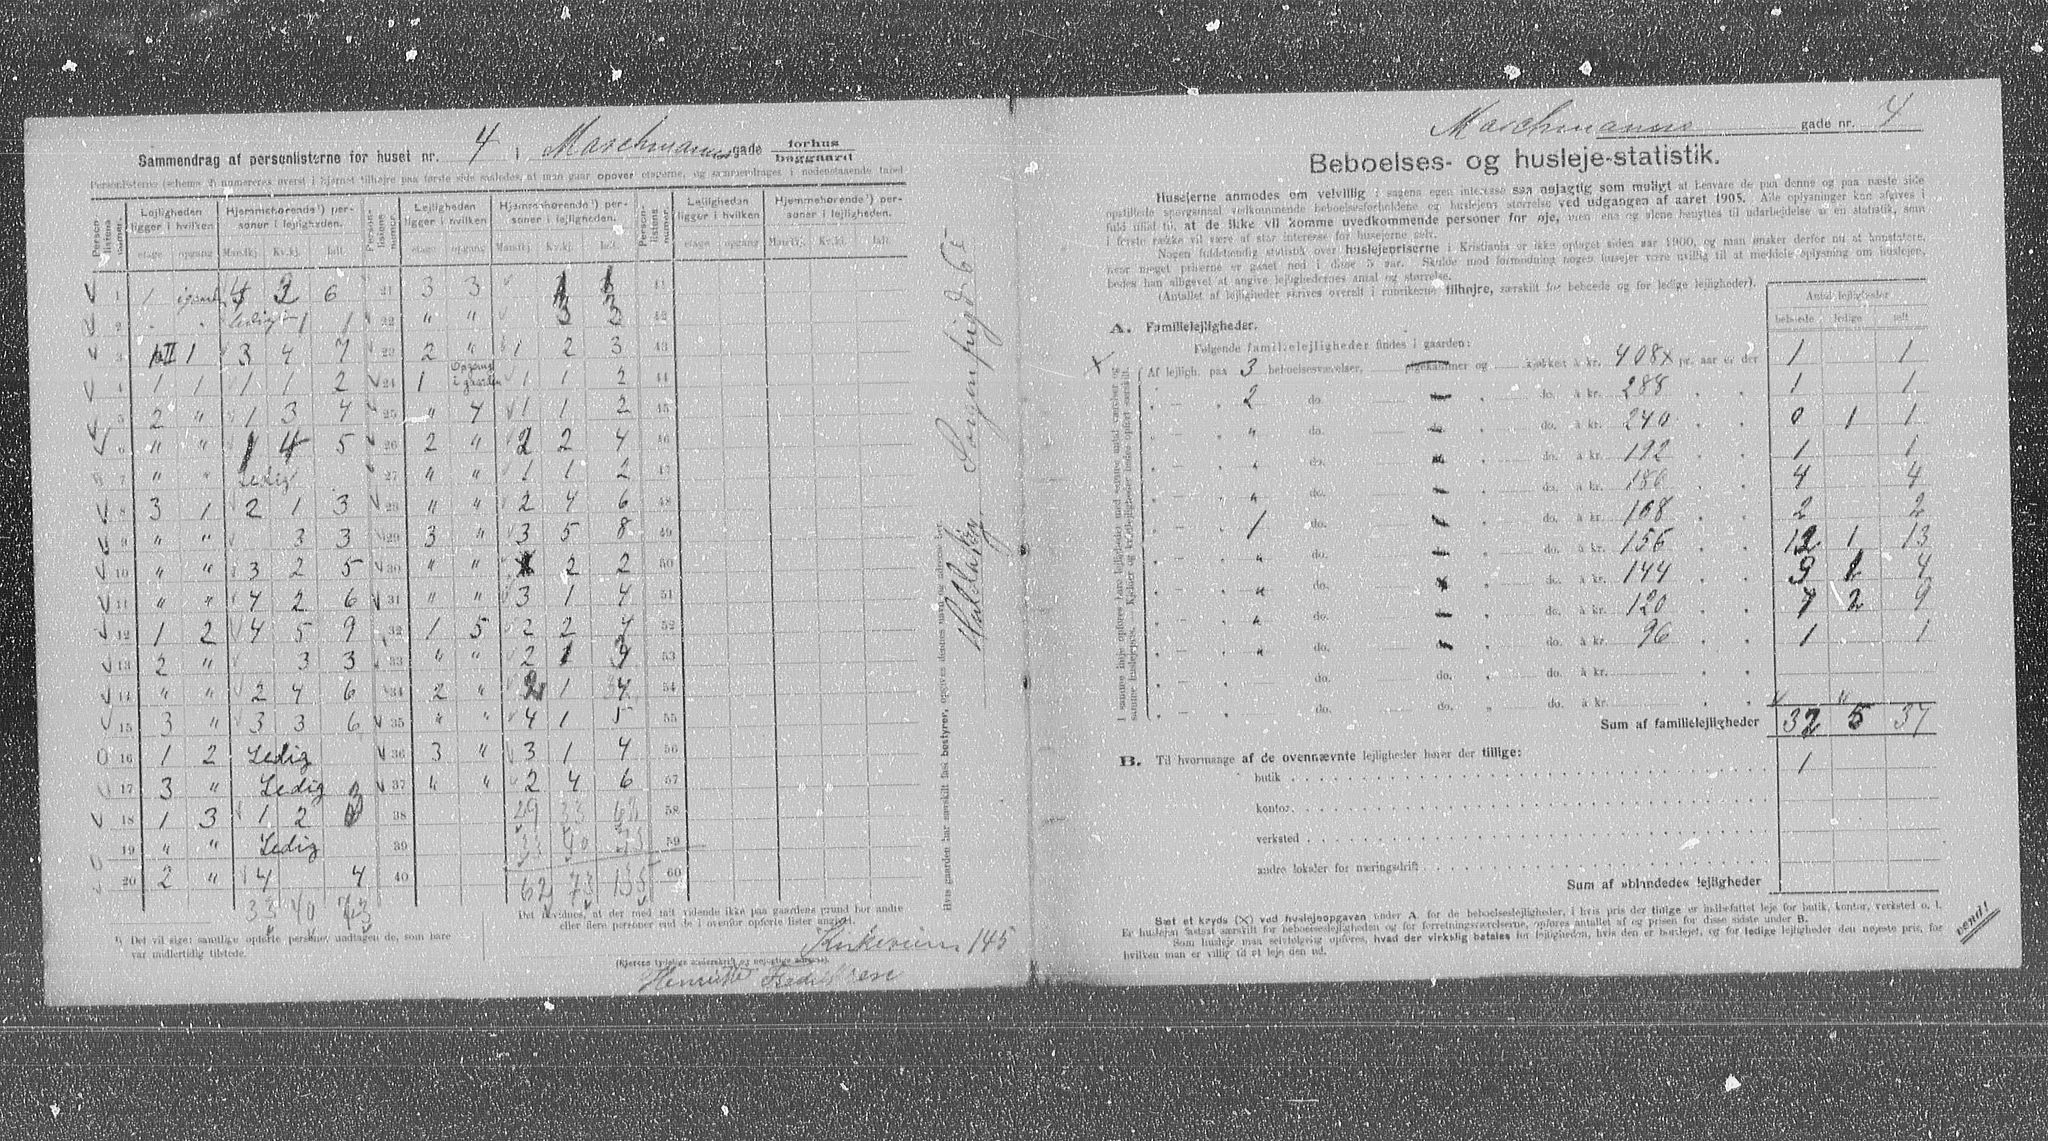 Sammendrag af personlisterne for huset nr. 4 i Marchmanns gade forhus baggaard
Personlisterne (schema 2) numereres øverst i hjørnet tilhøjre paa første side saaledes, at man gaar opover etagerne, og sammendrages i nedenstaaende tabel
Person-listens numer. | Lejligheden ligger i hvilken etage opgang | Hjemmehørende¹) personer i lejligheden. Mandkj. Kv.kj. Ialt.
1 1 igaard 4 2 6
2 " " ledig 1 1
3 II 1 3 4 7
4 1 1 1 1 2
5 2 " 1 3 4
6 " " 1 4 5
7 " " Ledig
8 3 1 2 1 3
9 " " 3 3
10 " " 3 2 5
11 " " 4 2 6
12 1 2 4 5 9
13 2 " 3 3
14 " " 2 4 6
15 3 " 3 3 6
16 1 2 Ledig
17 3 " Ledig
18 1 3 1 2 3
19 " " Ledig
20 2 " 4 4
33 40 73
21 3 3 1 1
22 " " 3 3
23 2 " 1 2 3
24 1 Opgang i gaarden 1 1 2
25 " 4 1 1 2
26 2 " 2 2 4
27 " " 1 1 2
28 " " 2 4 6
29 3 " 3 5 8
30 " " 2 2
31 " " 3 1 4
32 1 5 2 2 4
33 " " 2 1 3
34 2 " 1 4
35 " " 4 1 5
36 3 " 3 1 4
37 " " 2 4 6
38 29 33 62
39 33 40 73
40 62 73 135
41
42
43
44
45
46
47
48
49
50
51
52
53
54
55
56
57
58
59
60
¹) Det vil sige: samtlige opførte personer, undtagen de, som bare var midlertidig tilstede.
Det bevidnes, at der med mit vidende ikke paa gaardens grund bor andre eller flere personer end de i ovenfor opførte lister angivne.
Kirkeveien 145
(Ejerens tydelige underskrift og nøjagtige adresse).
Henriette Fredriksen
Hvis gaarden har særskilt fast bestyrer, opgives dennes navn og adresse her
Sorgenfrigd 6
Marchmanns gade nr. 4
Beboelses- og husleje-statistik.
Husejerne anmodes om velvillig i sagens egen interesse saa nøjagtig som muligt at besvare de paa denne og paa næste side
opstillede spørgsmaal vedkommende beboelsesforholdene og huslejens størrelse ved udgangen af aaret 1905. Alle oplysninger kan afgives i
fuld tillid til, at de ikke vil komme uvedkommende personer for øje, men ene og alene benyttes til udarbejdelse av en statistik, som
i første række vil være af stor interesse for husejerne selv.
Nogen fuldstændig statistik over huslejepriserne i Kristiania er ikke optaget siden aar 1900, og man ønsker derfor nu at konstatere,
hvor meget priserne er gaaet ned i disse 5 aar. Skulde mod formodning nogen husejer være uvillig til at meddele oplysning om huslejen,
bedes han alligevel at angive lejlighedernes antal og størrelse.
(Antallet af lejligheder skrives overalt i rubrikerne tilhøjre, særskilt for beboede og for ledige lejligheder).
Antal lejligheder
beboede ledige ialt
A. Familielejligheder.
Følgende familielejligheder findes i gaarden:
Af lejligh. paa 3 beboelsesværelser, pigekammer og kjøkken à kr. 408 x pr. aar er der 1 1
" — " 2 do. — " do. à kr. 288 " " 1 1
" — " " do. — " do. à kr. 240 " " 0 1 1
" — " " do. — " do. à kr. 192 " " 1 1
" — " " do. — " do. à kr. 180 " " 4 4
" — " 1 do. — " do. à kr. 168 " " 2 2
" — " " do. — " do. à kr. 156 " " 12 1 13
" — " " do. — " do. à kr. 144 " " 3 1 4
" — " " do. — " do. à kr. 120 " " 7 2 9
" — " " do. — " do. à kr. 96 " " 1 1
" — " do. — " do. à kr.
" — " do. — " do. à kr.
Sum af familielejligheder 32 5 37
I samme linje opføres bare lejligheder med samme antal værelser og samme huslejepris. Kjelder og kvistlejligheder bedes opført særskilt.
B. Til hvormange af de ovennævnte lejligheder hører der tillige:
butik 1
kontor
verksted
andre lokaler for næringsdrift
Sum af »blandede« lejligheder
Sæt et kryds (X) ved huslejeopgaven under A. for de beboelseslejligheder, i hvis pris der tillige er indbefattet leje for butik, kontor, verksted o. l.
Er huslejen fastsat særskilt for beboelseslejligheden og for forretningsværelserne, opføres antallet af og prisen for disse sidste under B.
Som husleje maa selvfølgelig opføres, hvad der virkelig betales for lejligheden, hvis den er bortlejet, og for ledige lejligheder den nøjeste pris, for
hvilken man er villig til at leje den ud.
Vend!